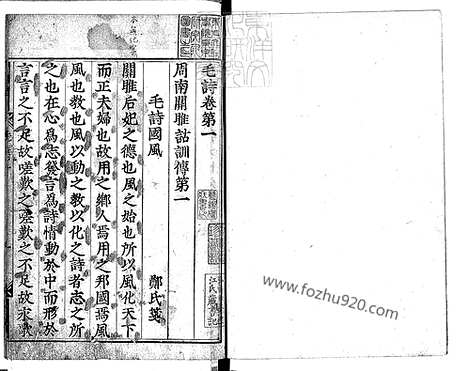 毛詩卷第一
周南關雎詁訓傳第一
毛詩國風 鄭氏箋
關雎后妃之德也風之始也所以風化天下
而正夫婦也故用之鄉人焉用之邦國焉風
風也教也風以動之教以化之詩者志之所
之也在心爲志發言爲詩情動於中而形於
言言之不足故嗟歎之嗟歎之不足故永歌
www.fozhu920.com